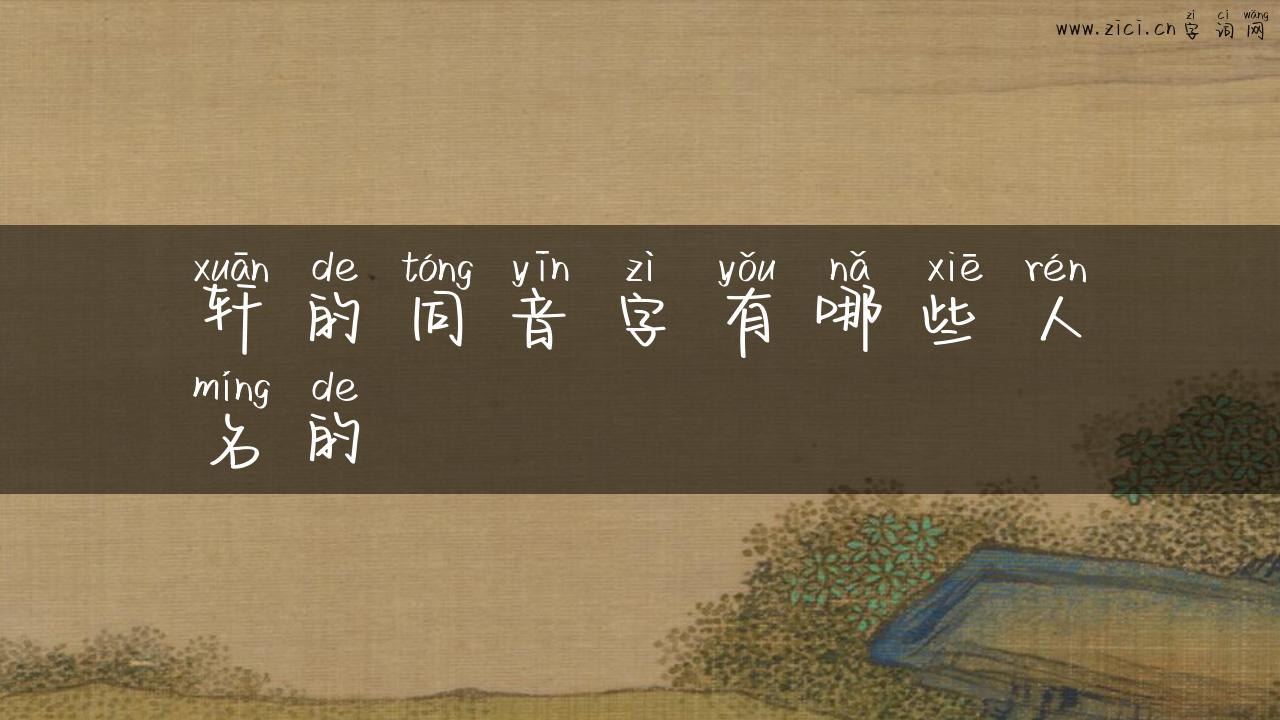 zì cí wǎng
www.zici.cn 字词网
xuān de tóng yīn zì yǒu nǎ xiē rén
轩的同音字有哪些人
míng de
名的